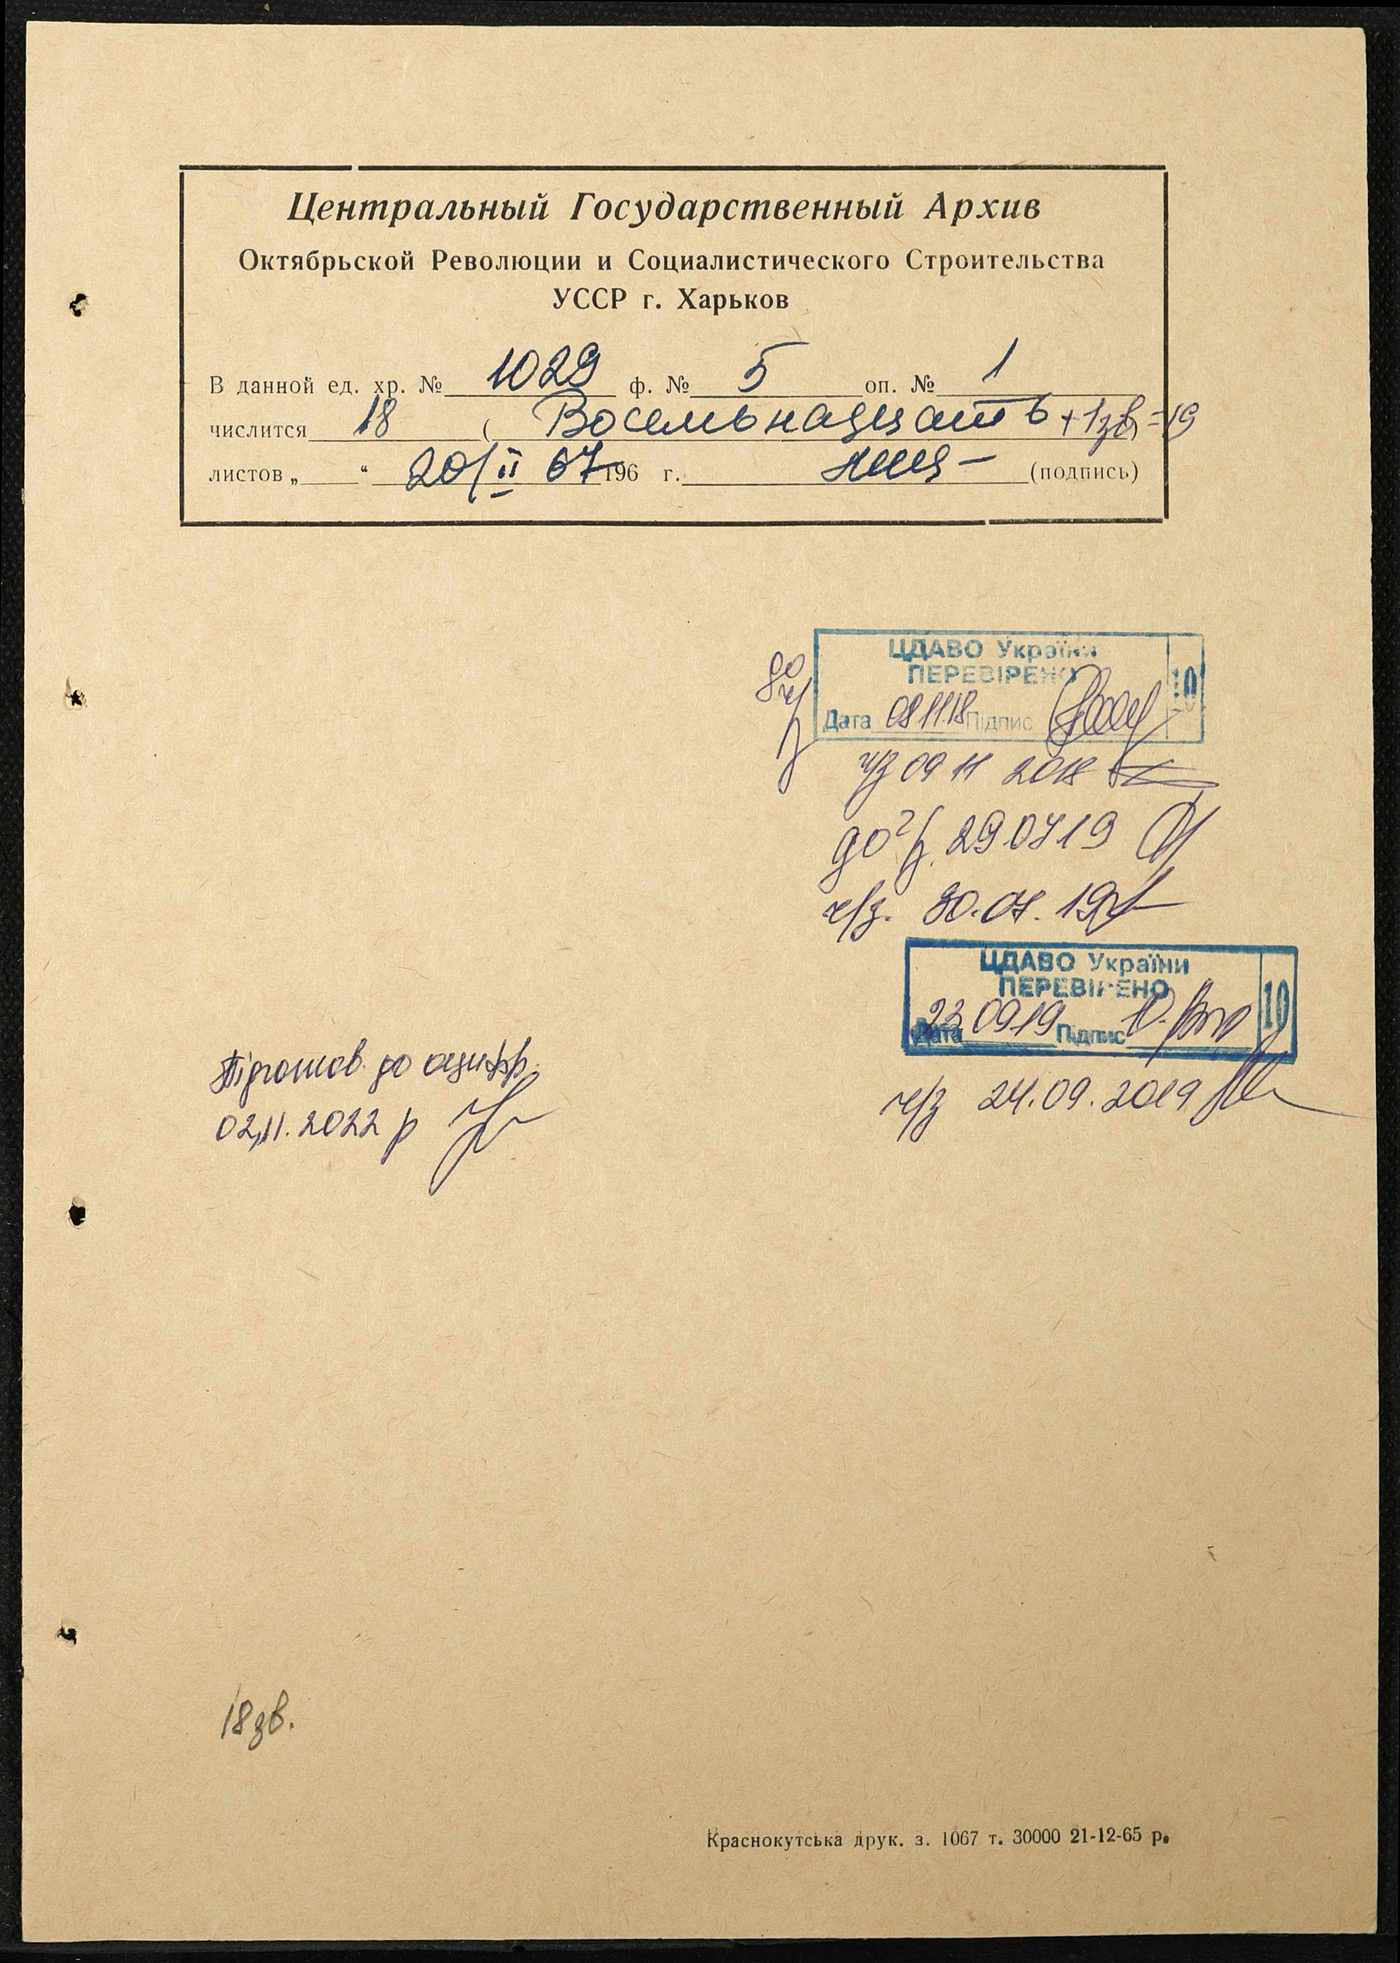 Центральный Государственный Архив
Октябрьской Революции и Социалистического Строительства
УССР г. Харьков
В данной ед. хр. № 1029 ф. № 5 оп. № 1
числится 18 ( Восемьнадцать +1зв) =19
листов „ “ 20/II 67 196 г. (подпись)
ЦДАВО України
ПЕРЕВІРЕНО
10
Дата 08 11 18 Підпис
до ч/з
ч/з 09 11 2018
до ч/з 29 07 19
ч/з. 30.07.19
ЦДАВО України
ПЕРЕВІРЕНО
10
Дата 23 09 19 Підпис
ч/з 24.09.2019
Підготов. до оцифр.
02.11.2022 р
18зв.
Краснокутська друк. з. 1067 т. 30000 21-12-65 р.